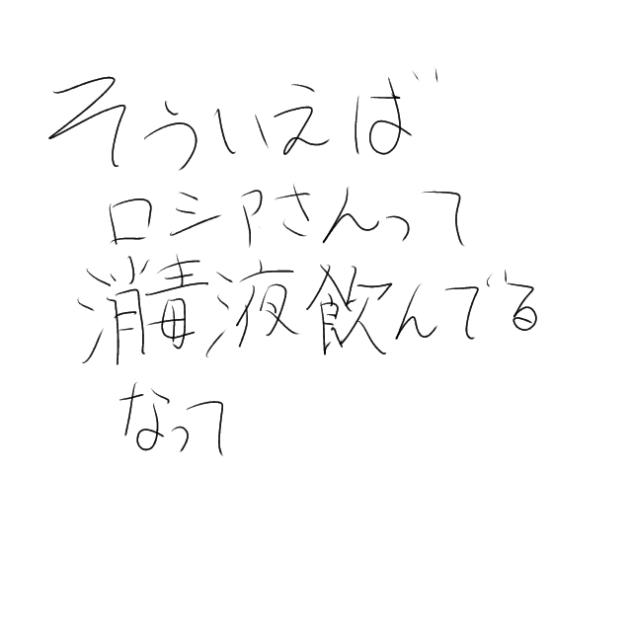 そういえば
ロシアさんって
消毒液飲んでる
なって